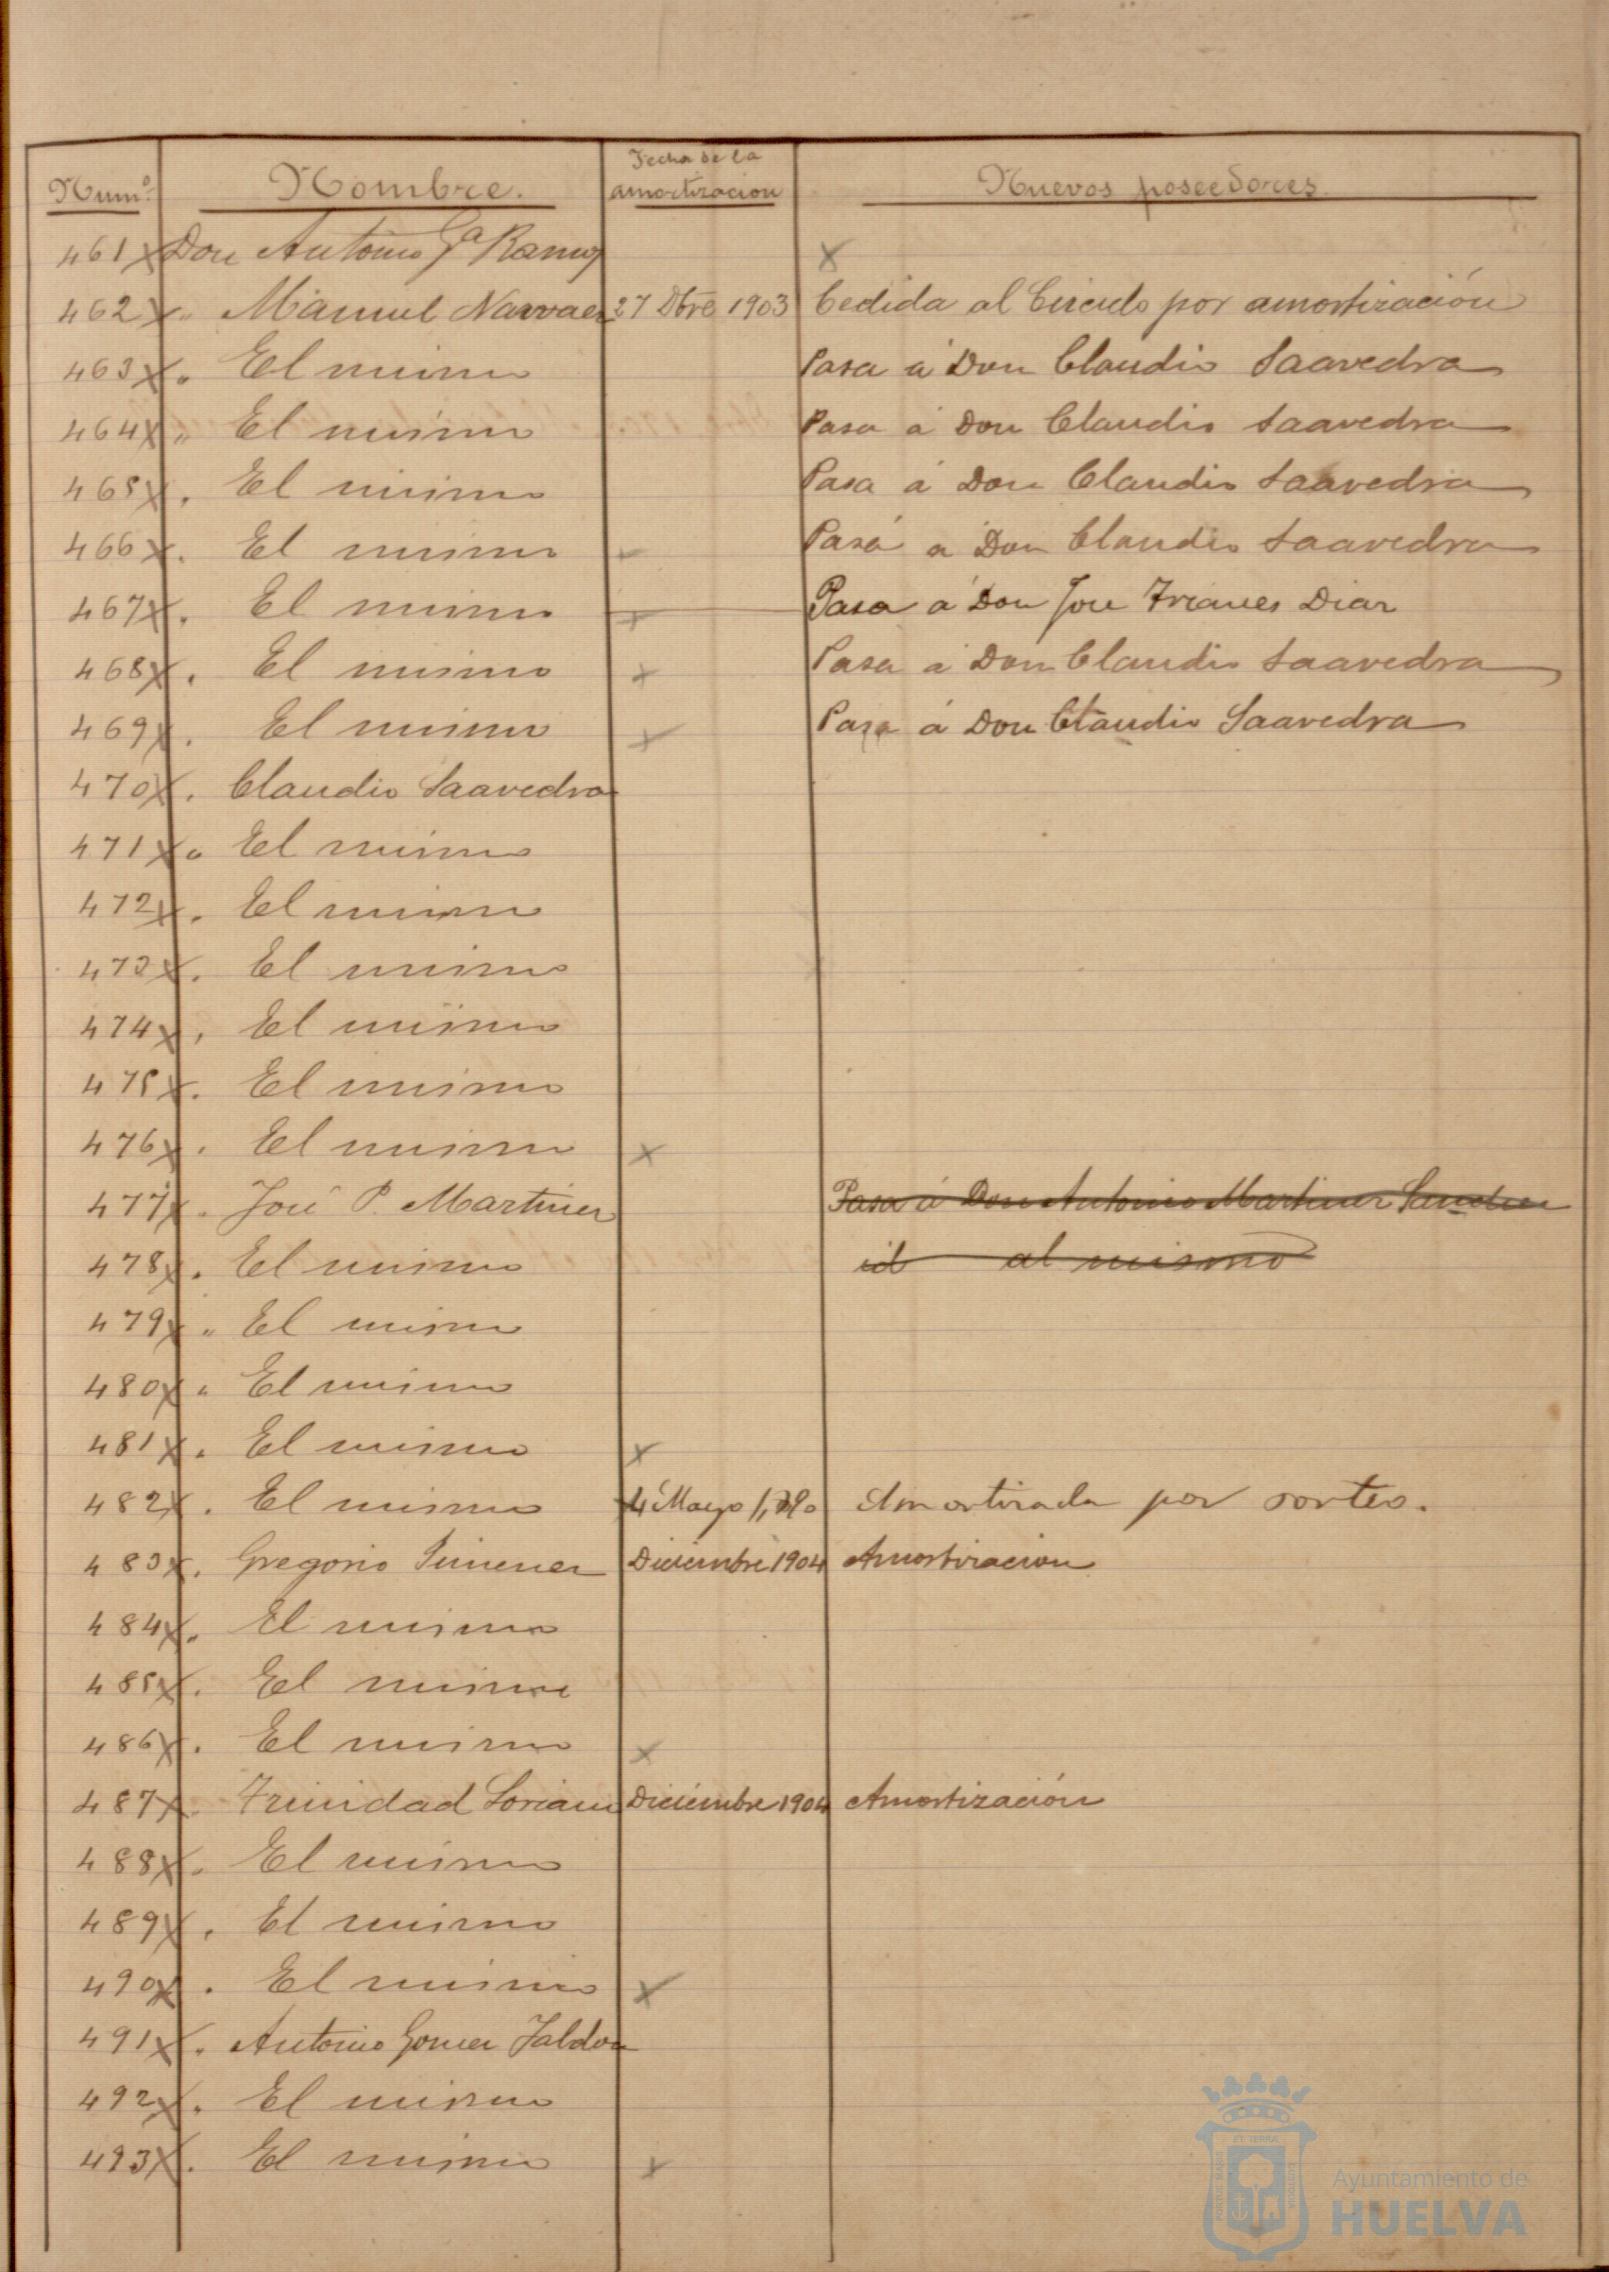 Numº Nombre. Fecha de la amortizacion Nuevos poseedores
461 X Don Antonio Gª Ramos X
462 X " Manuel Narvaez 27 Dbre 1903 Cedida al Circulo por amortización
463 X " El mismo Pasa á Don Claudio Saavedra
464 X " El mismo Pasa á Don Claudio Saavedra
465 X " El mismo Pasa á Don Claudio Saavedra
466 X " El mismo Pasa á Don Claudio Saavedra
467 X " El mismo X Pasa á Don José Trianes Diaz
468 X " El mismo X Pasa á Don Claudio Saavedra
469 X " El mismo X Pasa á Don Claudio Saavedra
470 X " Claudio Saavedra
471 X " El mismo
472 X " El mismo
473 X " El mismo
474 X " El mismo
475 X " El mismo
476 X " El mismo X
477 X " José P. Martinez Pasa á Don Antonio Martinez Sanchez
478 X " El mismo id al mismo
479 X " El mismo
480 X " El mismo
481 X " El mismo X
482 X " El mismo 4 Mayo Amortizada por sorteo.
483 X " Gregorio Jimenez Diciembre 1904 Amortizacion
484 X " El mismo
485 X " El mismo
486 X " El mismo X
487 X " Trinidad Soriano Diciembre 1904 Amortización
488 X " El mismo
489 X " El mismo
490 X " El mismo X
491 X " Antonio Gomez Jaldon
492 X " El mismo
493 X " El mismo X
Ayuntamiento de
HUELVA